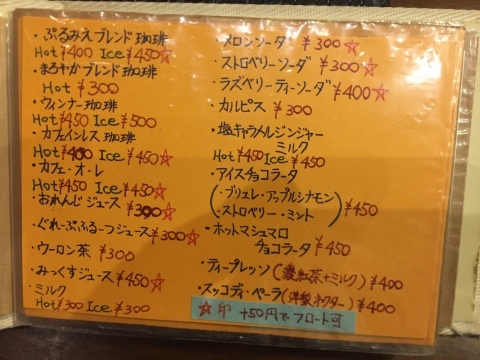 ・ぷるみえブレンド珈琲
Hot ¥400 Ice ¥450☆
・まろやかブレンド珈琲
Hot ¥300
・ウィンナー珈琲
Hot ¥450 Ice ¥500
・カフェインレス珈琲
Hot ¥400 Ice ¥450☆
・カフェ・オ・レ
Hot ¥450 Ice ¥450☆
・おれんじジュース ¥300☆
・ぐれーぷふるーつジュース ¥300☆
・ウーロン茶 ¥300
・みっくすジュース ¥450☆
・ミルク
Hot ¥300 Ice ¥300
・メロンソーダ ¥300☆
・ストロベリーソーダ ¥300☆
・ラズベリーティーソーダ ¥400☆
・カルピス ¥300
・塩キャラメルジンジャー
ミルク
Hot ¥450 Ice ¥450
・アイスチョコラータ
(・ブリュレ・アップルシナモン
・ストロベリー・ミント) ¥450
・ホットマシュマロ
チョコラータ ¥450
・ティープレッソ(濃紅茶+ミルク) ¥400
・スッコディ・ペーラ(洋梨ネクター) ¥400
☆印 +50円でフロート可